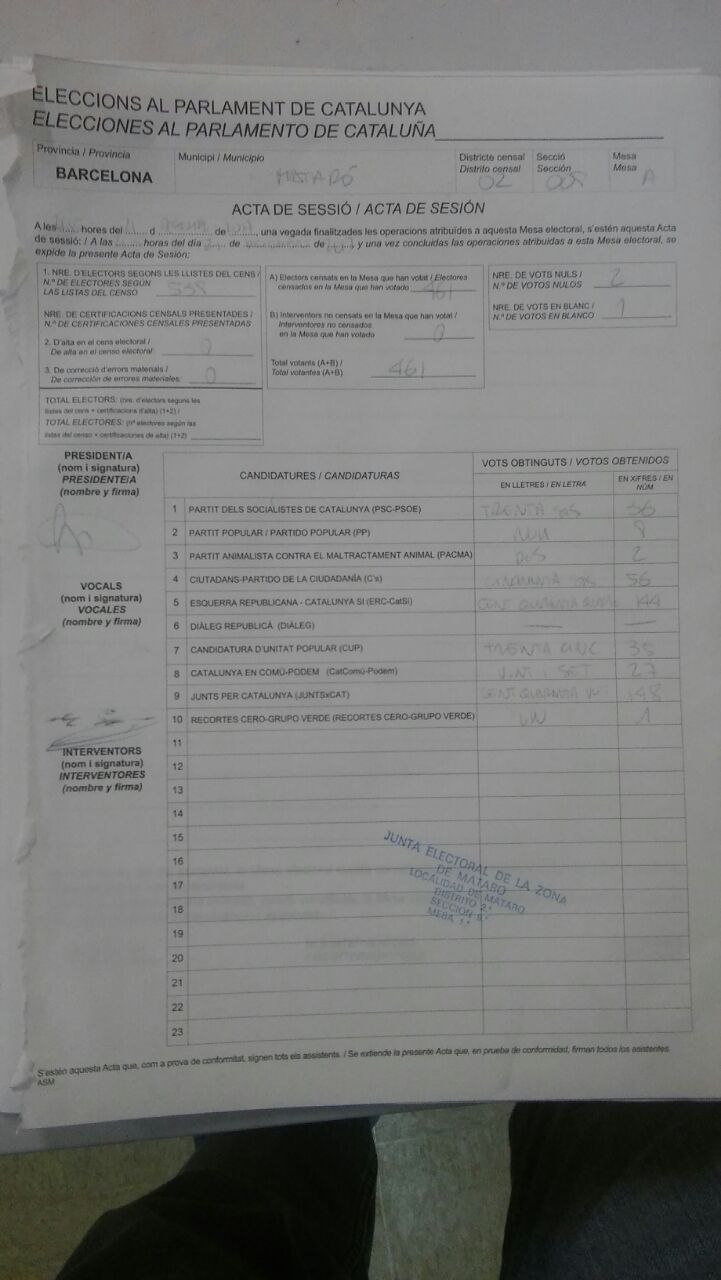 ELECCIONS AL PARLAMENT DE CATALUNYA
ELECCIONES AL PARLAMENTO DE CATALUÑA
Província / Provincia
BARCELONA
Municipi / Municipio
MATARÓ
Districte censal
Distrito censal
02
Secció
Sección
Mesa
Mesa
A
ACTA DE SESSIÓ / ACTA DE SESIÓN
A les hores del d de , una vegada finalitzades les operacions atribuïdes a aquesta Mesa electoral, s'estén aquesta Acta
de sessió: / A las ........ horas del día de de y una vez concluidas las operaciones atribuidas a esta Mesa electoral, se
expide la presente Acta de Sesión:
1. NRE. D'ELECTORS SEGONS LES LLISTES DEL CENS /
N.º DE ELECTORES SEGÚN
LAS LISTAS DEL CENSO
NRE. DE CERTIFICACIONS CENSALS PRESENTADES /
N.º DE CERTIFICACIONES CENSALES PRESENTADAS
2. D'alta en el cens electoral /
De alta en el censo electoral: 0
3. De correcció d'errors materials /
De corrección de errores materiales: 0
TOTAL ELECTORS: (nre. d'electors segons les
llistes del cens + certificacions d'alta) (1+2) /
TOTAL ELECTORES: (nº electores según las
listas del censo + certificaciones de alta) (1+2)
A) Electors censats en la Mesa que han votat / Electores
censados en la Mesa que han votado 461
B) Interventors no censats en la Mesa que han votat /
Interventores no censados
en la Mesa que han votado 0
Total votants (A+B) /
Total votantes (A+B) 461
NRE. DE VOTS NULS /
N.º DE VOTOS NULOS 2
NRE. DE VOTS EN BLANC /
N.º DE VOTOS EN BLANCO 1
PRESIDENT/A
(nom i signatura)
PRESIDENTE/A
(nombre y firma)
VOCALS
(nom i signatura)
VOCALES
(nombre y firma)
INTERVENTORS
(nom i signatura)
INTERVENTORES
(nombre y firma)
CANDIDATURES / CANDIDATURAS
VOTS OBTINGUTS / VOTOS OBTENIDOS
EN LLETRES / EN LETRA
EN XIFRES / EN
NÚM.
1 PARTIT DELS SOCIALISTES DE CATALUNYA (PSC-PSOE) TRENTA SIS 36
2 PARTIT POPULAR / PARTIDO POPULAR (PP) 8
3 PARTIT ANIMALISTA CONTRA EL MALTRACTAMENT ANIMAL (PACMA) DOS 2
4 CIUTADANS-PARTIDO DE LA CIUDADANÍA (C's) CINQUANTA SIS 56
5 ESQUERRA REPUBLICANA - CATALUNYA SÍ (ERC-CatSí) CENT QUARANTA 144
6 DIÀLEG REPUBLICÀ (DIÀLEG) — —
7 CANDIDATURA D'UNITAT POPULAR (CUP) TRENTA CINC 35
8 CATALUNYA EN COMÚ-PODEM (CatComú-Podem) VINT I SET 27
9 JUNTS PER CATALUNYA (JUNTSxCAT) CENT QUARANTA 148
10 RECORTES CERO-GRUPO VERDE (RECORTES CERO-GRUPO VERDE) UN 1
11
12
13
14
15
16
17
18
19
20
21
22
23
JUNTA ELECTORAL DE LA ZONA
DE MATARO
LOCALIDAD DE MATARO
DISTRITO 2.º
SECCION
MESA
S'estén aquesta Acta que, com a prova de conformitat, signen tots els assistents. / Se extiende la presente Acta que, en prueba de conformidad, firman todos los asistentes.
ASM